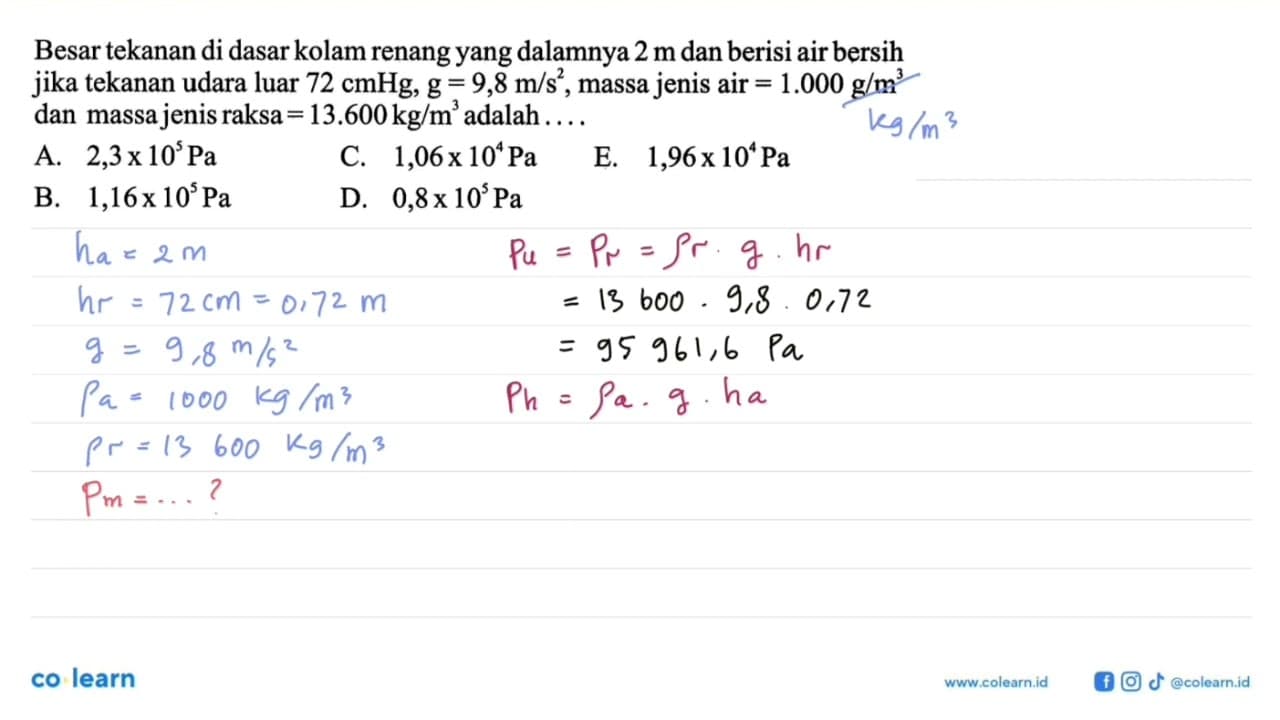 Besar tekanan di dasar kolam renang yang dalamnya 2 m dan berisi air bersih
jika tekanan udara luar 72 cmHg, g = 9,8 m/s², massa jenis air = 1.000 g/m³
dan massa jenis raksa = 13.600 kg/m³ adalah ....
kg/m³
A. 2,3 x 10⁵ Pa C. 1,06 x 10⁴ Pa E. 1,96 x 10⁴ Pa
B. 1,16 x 10⁵ Pa D. 0,8 x 10⁵ Pa
ha = 2 m
hr = 72 cm = 0,72 m
g = 9,8 m/s²
ρa = 1000 kg/m³
ρr = 13 600 kg/m³
Pm = ... ?
Pu = Pr = ρr . g . hr
= 13 600 . 9,8 . 0,72
= 95 961,6 Pa
Ph = ρa . g . ha
co learn
www.colearn.id
@colearn.id